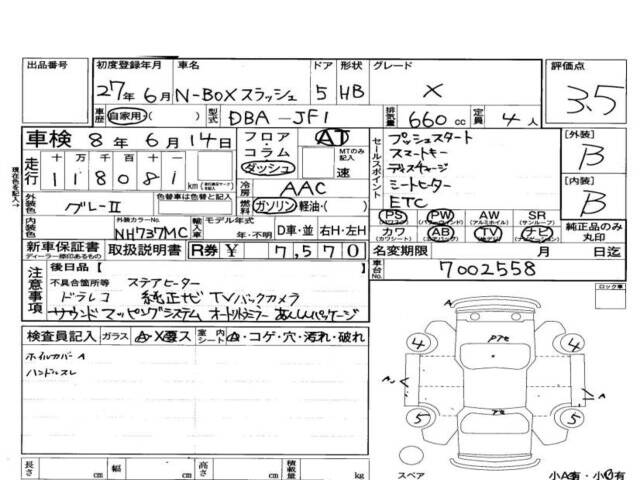 出品番号 初度登録年月 車名 ドア 形状 グレード 評価点
27年6月 N-BOXスラッシュ 5 HB X 3.5
車歴 自家用・( ) 型式 DBA-JF1 排気量 660cc 定員 4人
車検 8年6月14日 フロア・コラム・ダッシュ AT MTのみ記入 速
走行 十万千百十一 118081 km
冷房 AAC
外装色 グレーII 色替車は色替と記入 燃料 ガソリン・軽油・( )
内装色 外装カラーNo. NH737MC モデル年式 年・不明 輸入車 D車・並 右H・左H
セールスポイント
プッシュスタート
スマートキー
ディスチャージ
シートヒーター
ETC
[外装] B
[内装] B
PS PW AW SR
(パワステ) (パワーウィンド) (アルミホイル) (サンルーフ)
カワ AB TV ナビ
(カワシート) (エアバック)
純正品のみ丸印
新車保証書 取扱説明書 R券 ¥ 7,570
ディーラー捺印あるもの
名変期限 月 日迄
車台No. 7002558
現在色を記入→
注意事項
後日品[ ]
不具合箇所等 ステアヒーター
ドラレコ 純正ナビ TVバックカメラ
サウンドマッピングシステム オートリトラミラー あんしんパッケージ
ロック車
検査員記入 ガラス A・X要ス 室内シート A・コゲ・穴・汚れ・破れ
ホイルカバーA
ハンドルスレ
A
4 4
5 5
A A
スペア 小A有・小U有
長さ cm 幅 cm 高さ cm 積載量 kg